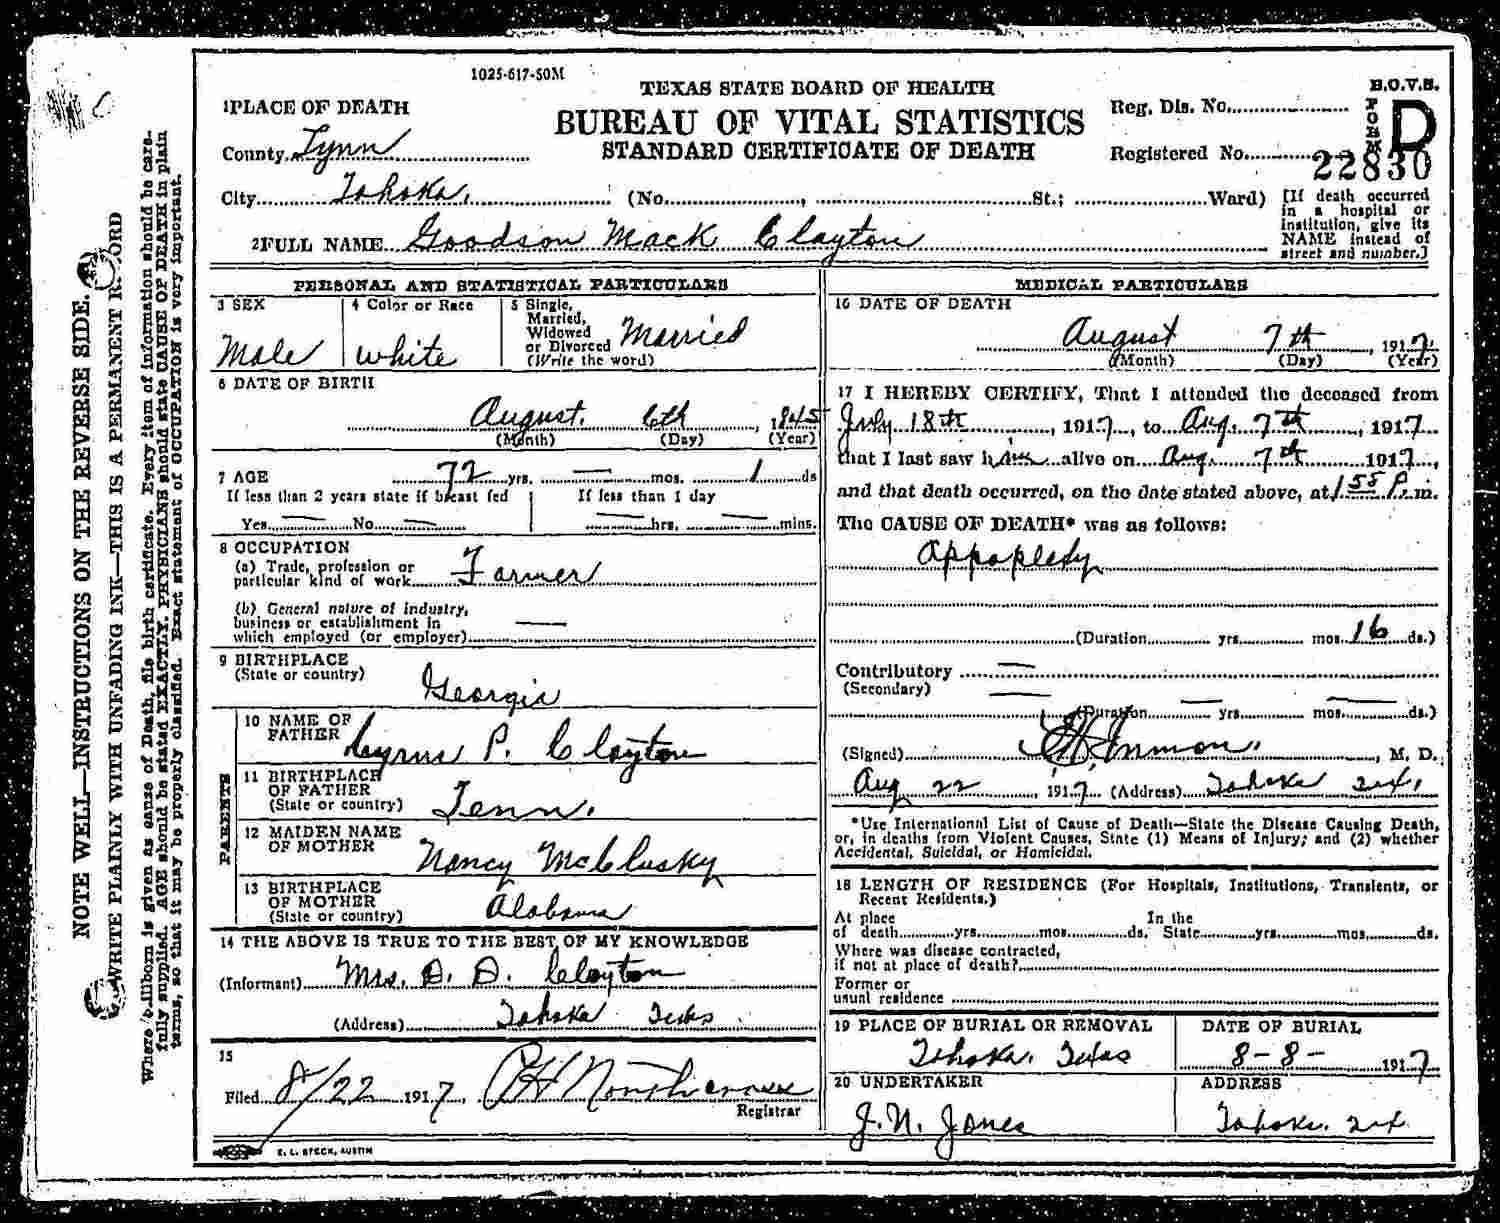 1025-617-50M
TEXAS STATE BOARD OF HEALTH
BUREAU OF VITAL STATISTICS
STANDARD CERTIFICATE OF DEATH
B.O.V.S.
FORM D
1 PLACE OF DEATH
County Lynn
City Tahoka. (No. , St.; Ward)
Reg. Dis. No.
Registered No. 22830
[If death occurred
in a hospital or
institution, give its
NAME instead of
street and number.]
2 FULL NAME Goodson Mack Clayton
PERSONAL AND STATISTICAL PARTICULARS
3 SEX
Male
4 Color or Race
white
5 Single,
Married,
Widowed
or Divorced
(Write the word)
Married
6 DATE OF BIRTH
August. 6th, 1845
(Month) (Day) (Year)
7 AGE
72 yrs. — mos. 1 ds
If less than 2 years state if breast fed
Yes — No —
If less than 1 day
— hrs. — mins.
8 OCCUPATION
(a) Trade, profession or
particular kind of work Farmer
(b) General nature of industry,
business or establishment in
which employed (or employer) —
9 BIRTHPLACE
(State or country)
Georgia
PARENTS
10 NAME OF
FATHER
Cyrus P. Clayton
11 BIRTHPLACE
OF FATHER
(State or country)
Tenn.
12 MAIDEN NAME
OF MOTHER
Nancy McClusky
13 BIRTHPLACE
OF MOTHER
(State or country)
Alabama
14 THE ABOVE IS TRUE TO THE BEST OF MY KNOWLEDGE
(Informant) Mrs. D. D. Clayton
(Address) Tahoka Texas
15
Filed 8/22 1917,
Registrar
E. L. STECK, AUSTIN
MEDICAL PARTICULARS
16 DATE OF DEATH
August 7th, 1917
(Month) (Day) (Year)
17 I HEREBY CERTIFY, That I attended the deceased from
July 18th, 1917, to Aug. 7th, 1917
that I last saw him alive on Aug. 7th 1917,
and that death occurred, on the date stated above, at 1 55 P. m.
The CAUSE OF DEATH* was as follows:
Appoplexy
(Duration yrs. mos. 16 ds.)
Contributory —
(Secondary) —
(Duration yrs. — mos. — ds.)
(Signed) Inmon. , M. D.
Aug 22, 1917 (Address) Tahoka Tex.
*Use International List of Cause of Death—State the Disease Causing Death,
or, in deaths from Violent Causes, State (1) Means of Injury; and (2) whether
Accidental, Suicidal, or Homicidal.
18 LENGTH OF RESIDENCE (For Hospitals, Institutions, Transients, or
Recent Residents.)
At place In the
of death yrs. mos. ds. State yrs. mos. ds.
Where was disease contracted,
if not at place of death?
Former or
usual residence
19 PLACE OF BURIAL OR REMOVAL
Tahoka. Texas
DATE OF BURIAL
8-8- 1917
20 UNDERTAKER
J. N. Jones
ADDRESS
Tahoka. Tex.
NOTE WELL—INSTRUCTIONS ON THE REVERSE SIDE.
WRITE PLAINLY WITH UNFADING INK—THIS IS A PERMANENT RECORD
Where stillborn is given as cause of Death, file birth certificate. Every item of information should be care-
fully supplied. AGE should be stated EXACTLY. PHYSICIANS should state CAUSE OF DEATH in plain
terms, so that it may be properly classified. Exact statement of OCCUPATION is very important.